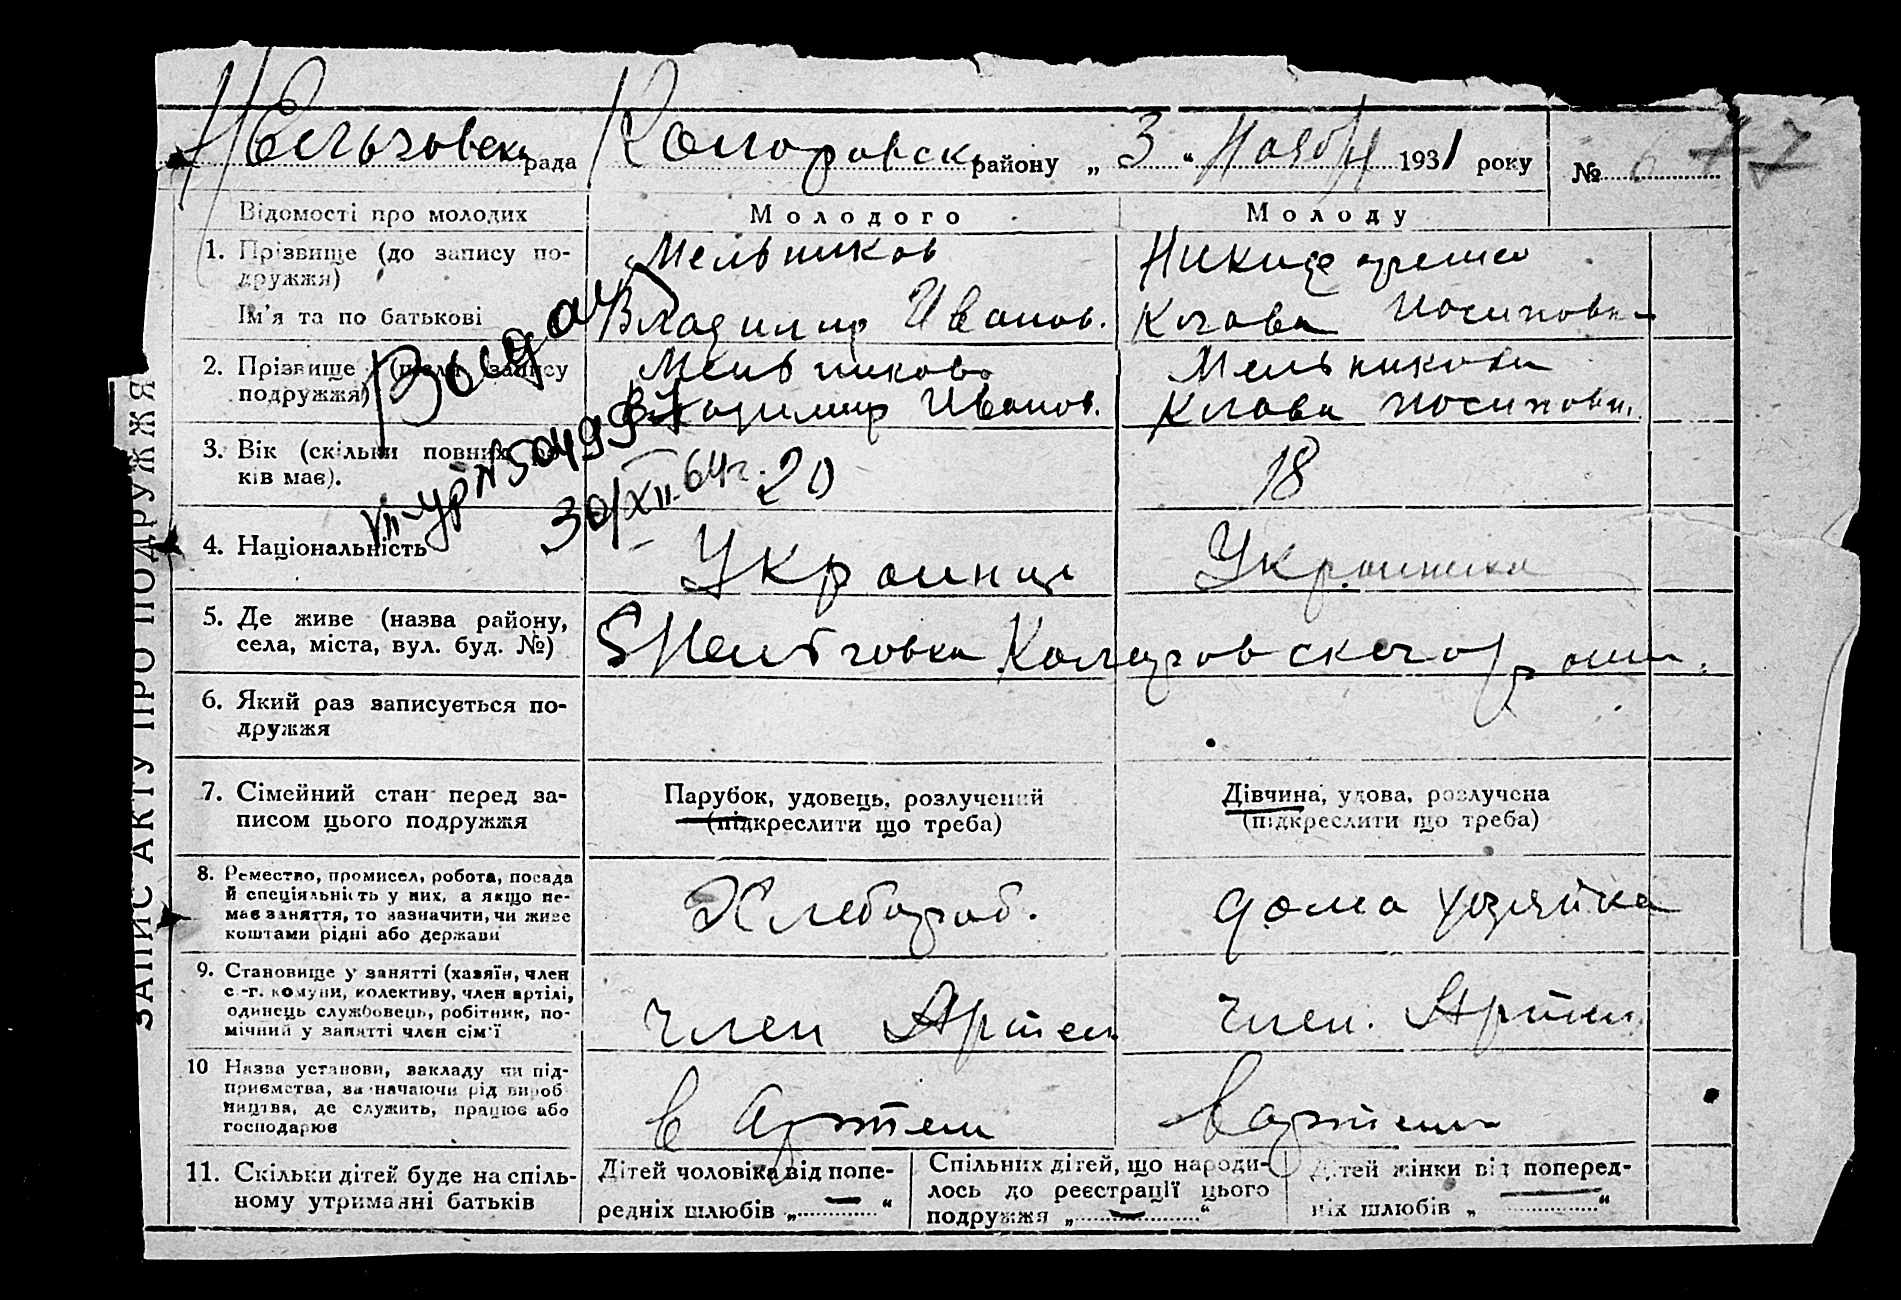 рада Коларовск району „ 3 “ Ноября 1931 року №
Відомості про молодих
Молодого
Молоду
1. Прізвище (до запису по-
дружжя)
Мельников
Ім'я та по батькові
Владимир Иванов.
Клава Иосиповн
2. Прізвище (після запису
подружжя)
Мельников
Владимир Иванов.
Мельникова
Клава Иосиповн.
Выдан
VII-УР № 504993
30/XII-64г.
3. Вік (скільки повних ро-
ків має).
20
18
4. Національність
Украинец
Украинка
5. Де живе (назва району,
села, міста, вул. буд. №)
Коларовского район.
6. Який раз записується по-
дружжя
7. Сімейний стан перед за-
писом цього подружжя
Парубок, удовець, розлучений
(підкреслити що треба)
Дівчина, удова, розлучена
(підкреслити що треба)
8. Ремество, промисел, робота, посада
й спеціяльність у них, а якщо не-
має заняття, то зазначити, чи живе
коштами рідні або держави
Хлебороб.
дома хозяйка
9. Становище у занятті (хазяїн, член
с.-г. комуни, колективу, член артілі,
одинець службовець, робітник, по-
мічний у занятті член сім'ї
член Артел
член. Артел
10 Назва установи, закладу чи під-
приємства, зазначаючи рід вироб
ництва, де служить, працює або
господарює
в Артели
в артели
11. Скільки дітей буде на спіль-
ному утриманні батьків
Дітей чоловіка від попе-
редніх шлюбів „ — “
Спільних дітей, що народи-
лось до реєстрації цього
подружжя „ — “
Дітей жінки від поперед-
ніх шлюбів „ — “
ЗАПИС АКТУ ПРО ПОДРУЖЖЯ